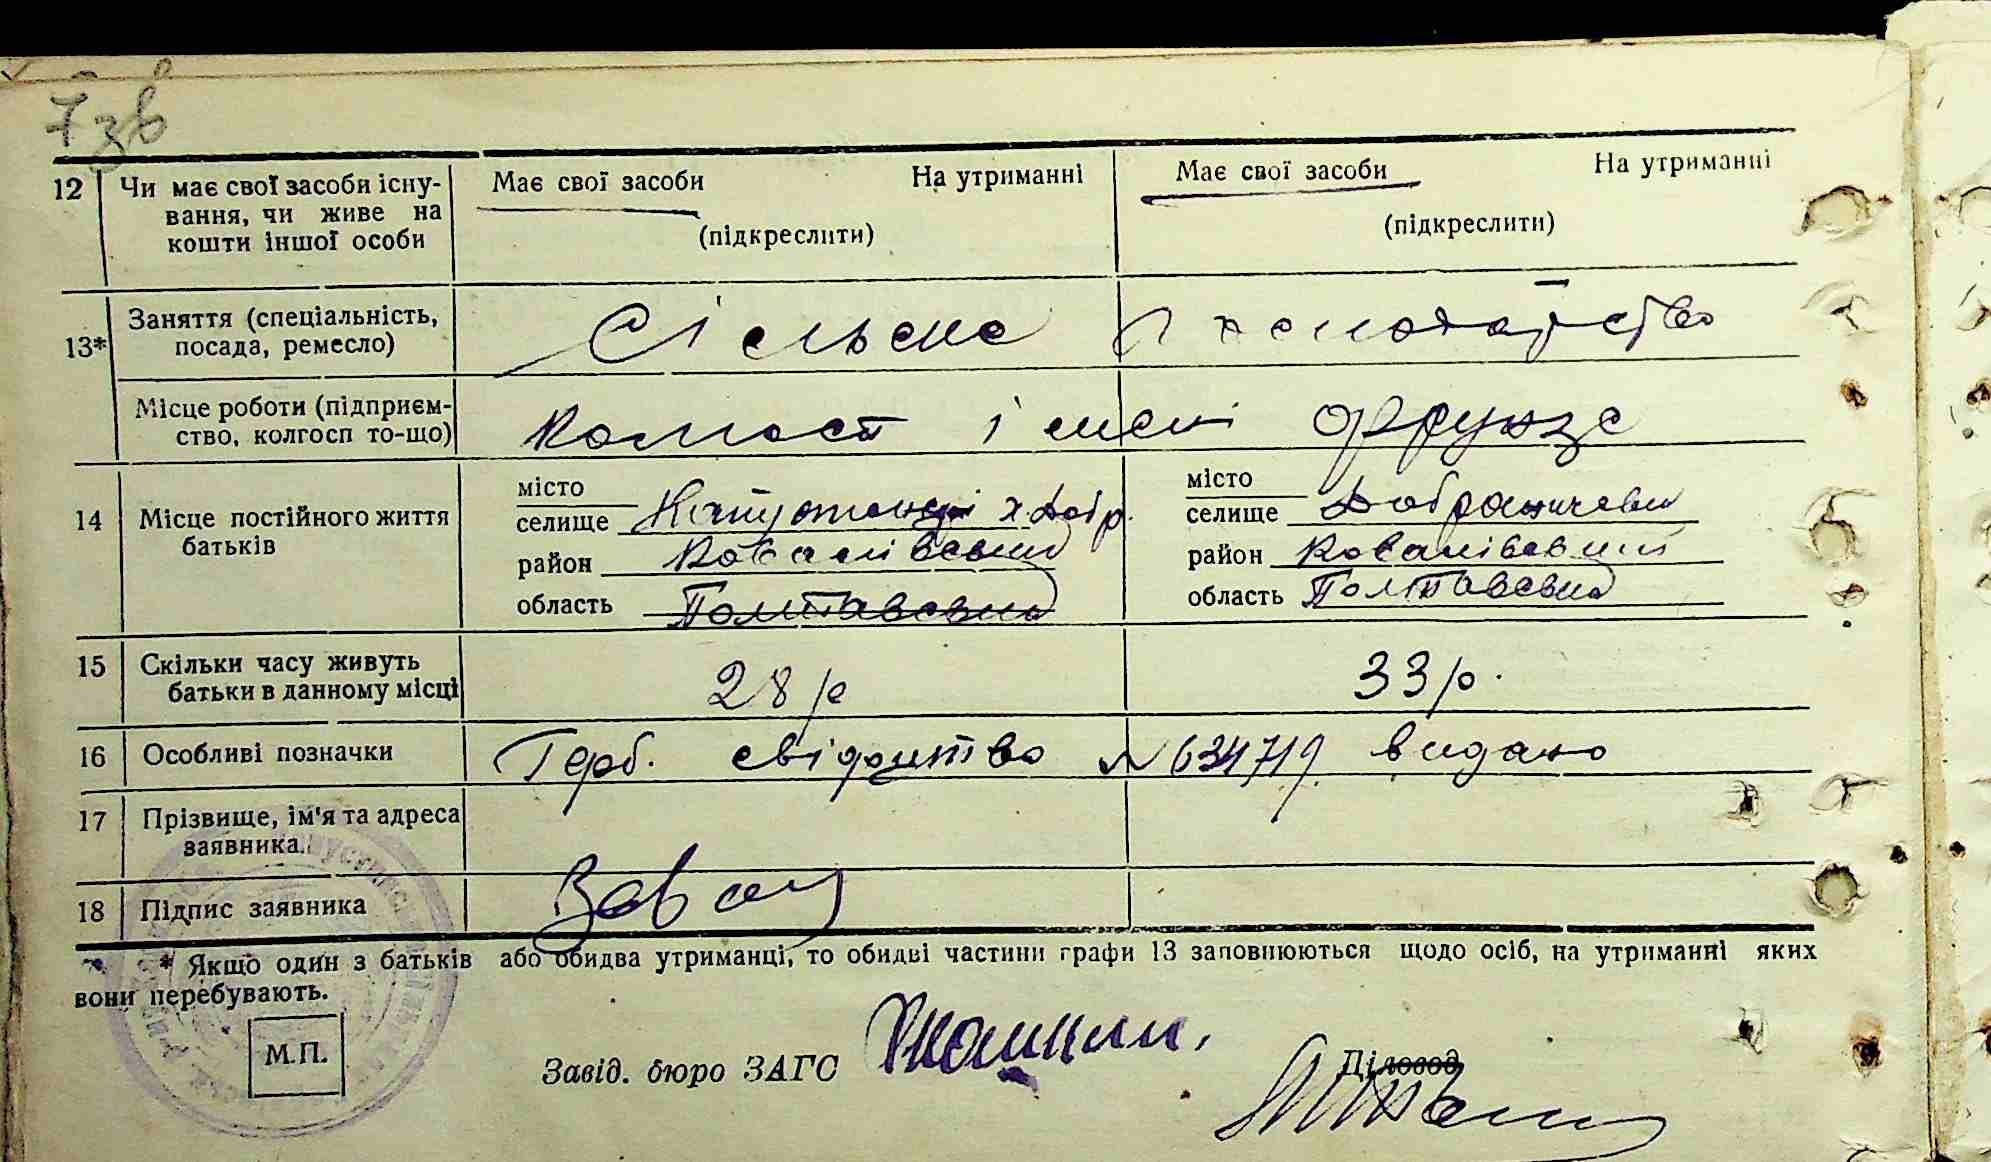 7 зв
12 Чи має свої засоби існу- Має свої засоби На утриманні Має свої засоби На утриманні
вання, чи живе на
кошти іншої особи (підкреслити) (підкреслити)
13* Заняття (спеціальність, Сільське господарство
посада, ремесло)
Місце роботи (підприєм- Колгосп імені Фрунзе
ство, колгосп то-що)
14 Місце постійного життя місто місто
батьків селище х. Добр. селище
район Ковалівський район Ковалівський
область Полтавська область Полтавська
15 Скільки часу живуть 28 р 33 р.
батьки в данному місці
16 Особливі позначки Герб. свідоцтво № 634719 видано
17 Прізвище, ім'я та адреса
заявника.
18 Підпис заявника
* Якщо один з батьків або обидва утриманці, то обидві частини графи 13 заповнюються щодо осіб, на утриманні яких
вони перебувають.
М.П.
Завід. бюро ЗАГС Діловод